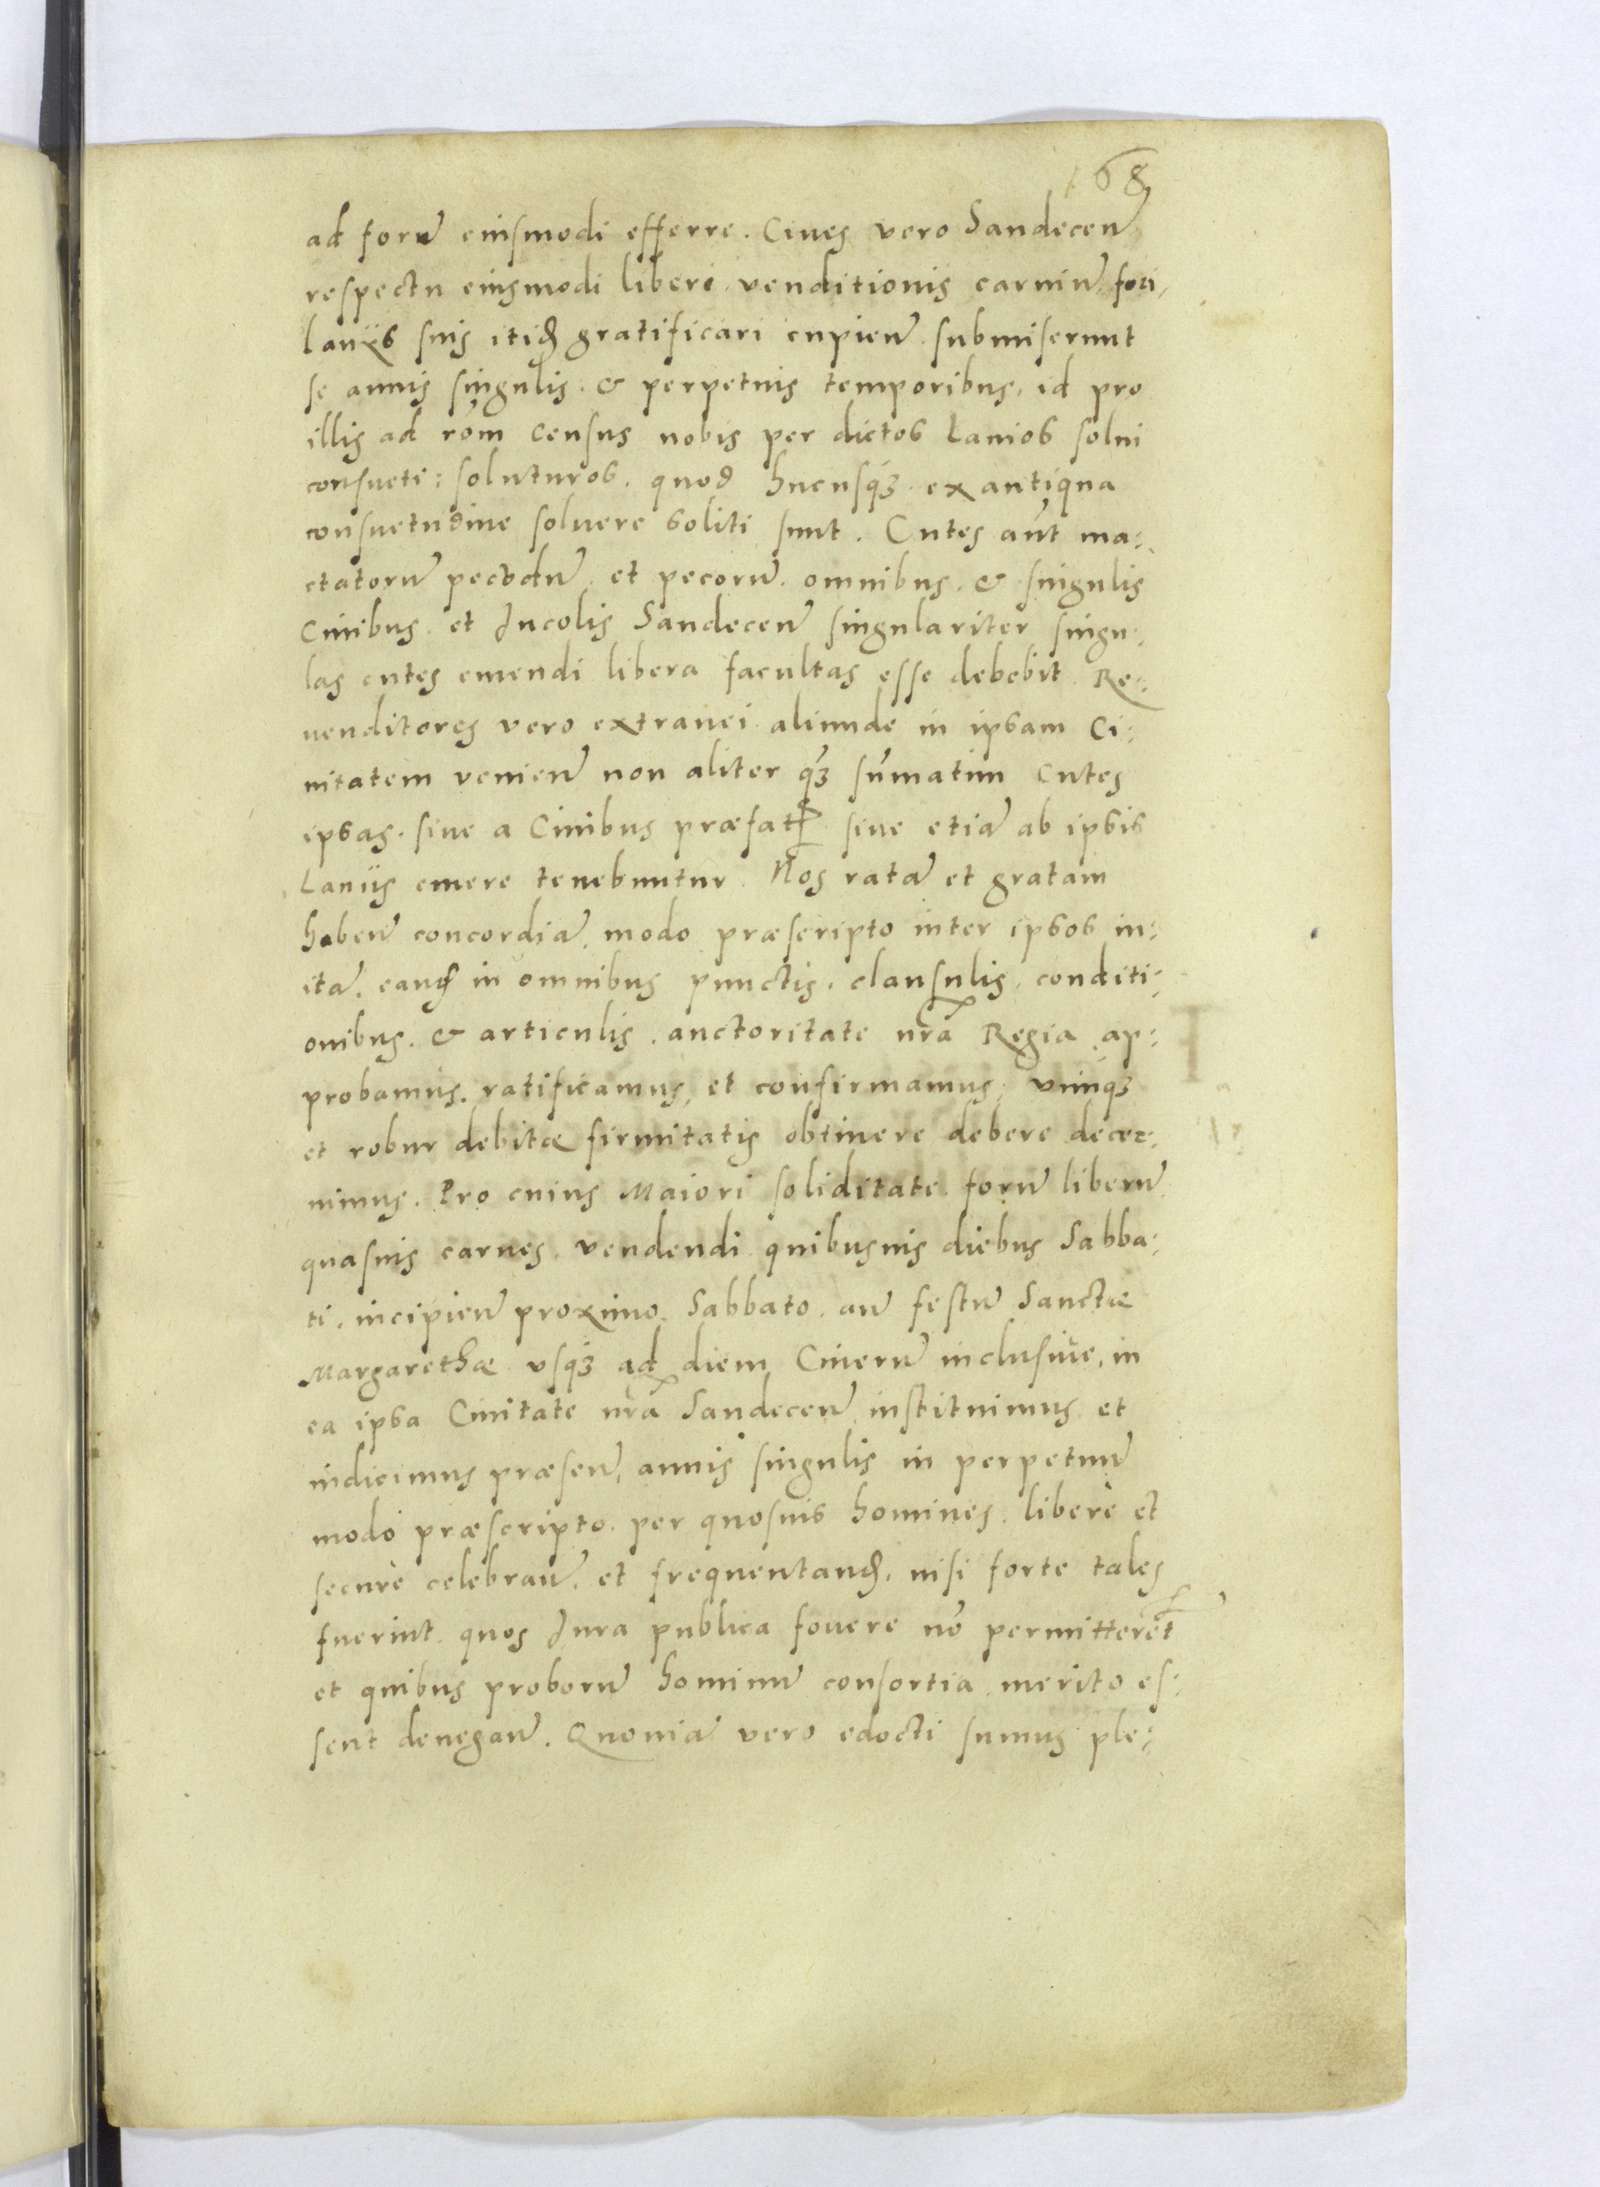 68
ad forũ eiusmodi efferre. Ciues vero Sandeceñ
respectu eiusmodi liberi venditionis carniũ fori,
laniis suis itid gratificari cupieñ submiserunt
se annis singulis. & perpetuis temporibus, id pro
illis ad rõm census nobis per dictos Lanios solui
consueti: soluturos. quod hucusq3 ex antiqua
consuetudine soluere soliti sunt. Cutes aũt ma:
ctatorũ pecudũ et pecorũ omnibus. & singulis
Ciuibus et Incolis Sandeceñ singulariter singu:
las cutes emendi libera facultas esse debebit Re:
uenditores vero extranei aliunde in ipsam Ci:
uitatem venieñ non aliter q̃3 sũmatim cutes
ipsas. siue a Ciuibus præfat siue etiã ab ipsis
Laniis emere tenebuntur. Nos ratã et gratam
habeñ concordiã, modo præscripto inter ipsos in:
itã, eand in omnibus punctis, clausulis, conditi:
onibus. & articulis. auctoritate nrã Regia ap:
probamus, ratificamus, et confirmamus, vimq3
et robur debitæ firmitatis obtinere debere decer:
nimus. Pro cuius Maiori soliditate forũ liberũ
quasuis carnes vendendi quibusuis diebus Sabba:
ti, incipieñ proximo Sabbato añ festũ Sanctæ
Margarethæ vsq3 ad diem Cinerũ inclusiue, in
ea ipsa Ciuitate nrã Sandeceñ instituimus et
indicimus præseñ, annis singulis in perpetuũ
modo præscripto. per quosuis homines. liberè et
securè celebrañ. et frequentand. nisi forte tales
fuerint. quos Iura publica fouere nõ permitterẽt
et quibus proborũ hominũ consortia merito es:
sent denegañ. Quoniã vero edocti sumus ple: